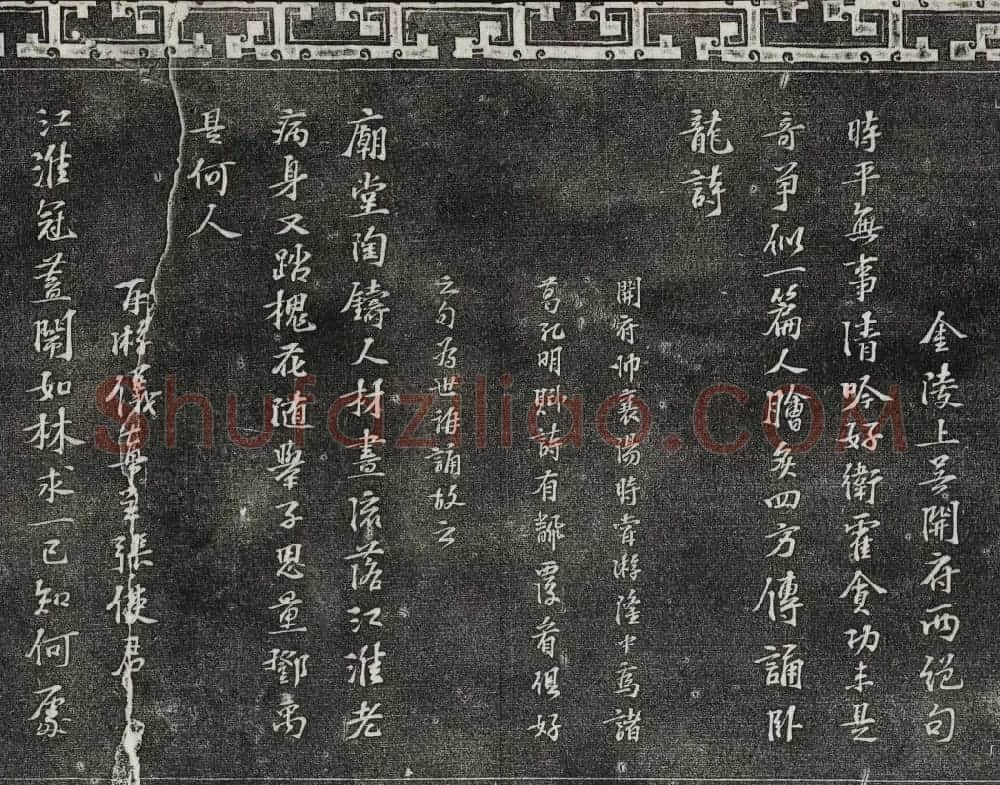 金陵上吴開府兩絕句
時平無事清吟好衛霍貪功未是
奇爭似一篇人膾炙四方傳誦卧
龍詩
開府帥襄陽時嘗游隆中爲諸
葛孔明賦詩有翻覆看俱好
之句爲世誰誦故云
廟堂陶鑄人材盡流落江淮老
病身又踏槐花隨舉子思量鄧禹
是何人
再游儀真呈張使君
江淮冠蓋鬧如林求一已知何處
Shufaziliao.com